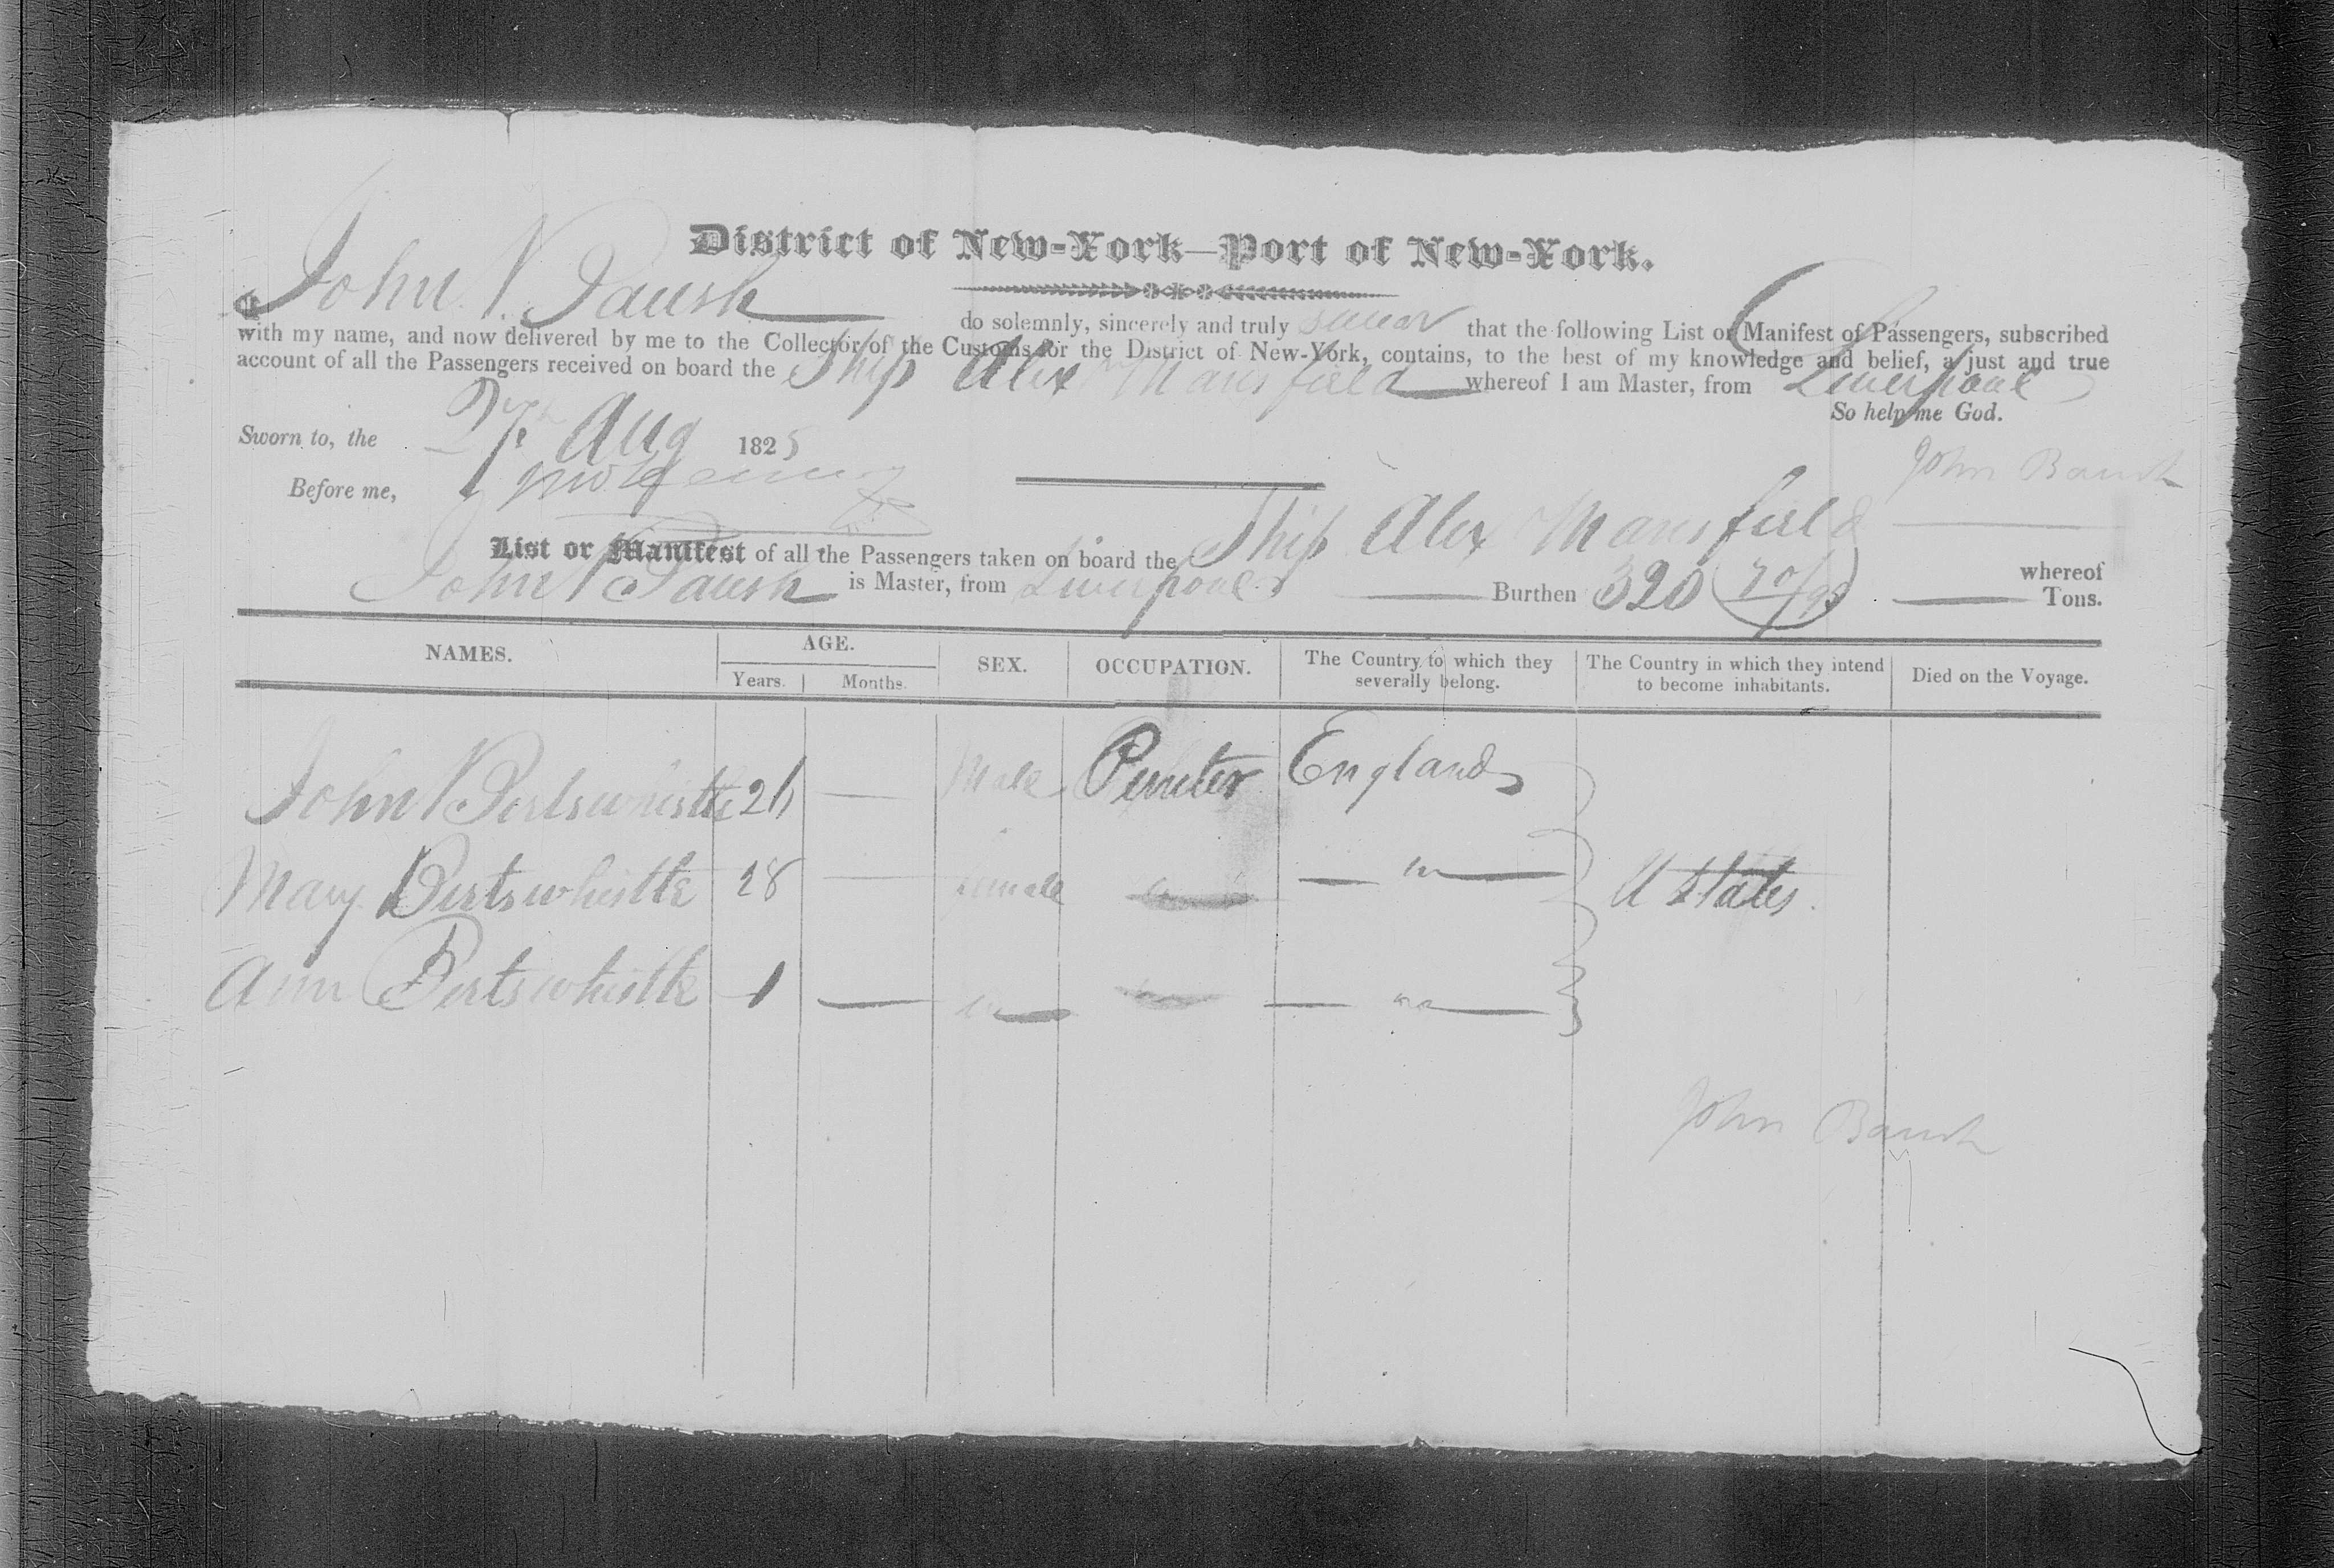 District of New-York—Port of New-York.
I John Baush do solemnly, sincerely and truly swear that the following List or Manifest of Passengers, subscribed
with my name, and now delivered by me to the Collector of the Customs for the District of New-York, contains, to the best of my knowledge and belief, a just and true
account of all the Passengers received on board the Ship Alex Mansfield whereof I am Master, from Liverpool
So help me God.
Sworn to, the 27th Aug 1825
John Baush
Before me,
List or Manifest of all the Passengers taken on board the Ship Alex Mansfield whereof
John Baush is Master, from Liverpool Burthen 320 70/95 Tons.
NAMES. AGE. SEX. OCCUPATION. The Country to which they severally belong. The Country in which they intend to become inhabitants. Died on the Voyage.
Years. Months.
John Bertswhistle 26 — Male England
Mary Bertswhistle 28 — female — " — U States.
Ann Bertswhistle 1 — " — " —
John Baush